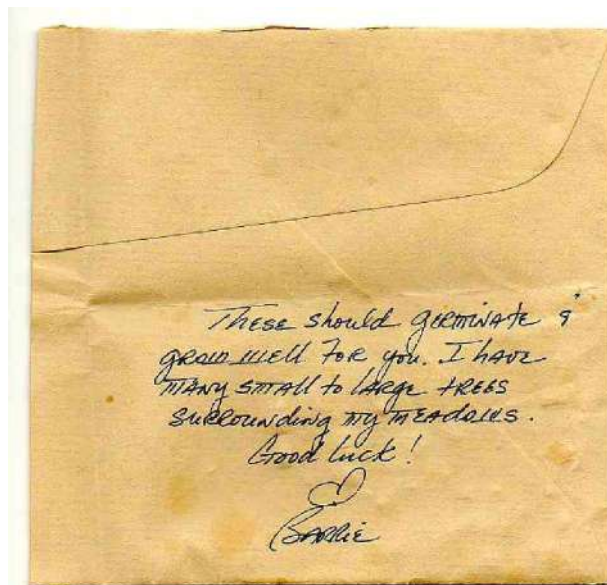 These should germinate &
grow well for you. I have
many small to large trees
surrounding my meadows.
Good luck!
♡
Barrie